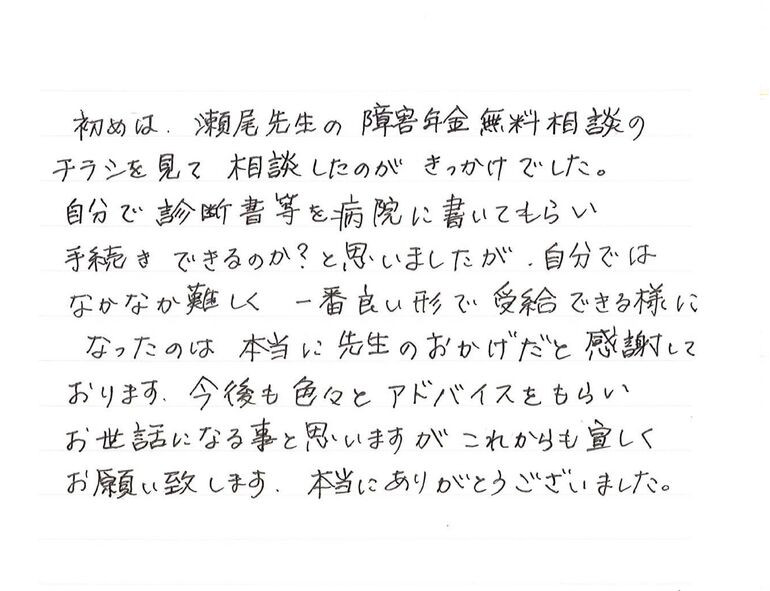 初めは、瀬尾先生の 障害年金無料相談の
チラシを見て 相談したのが きっかけでした。
自分で 診断書等を病院に書いてもらい
手続き できるのか?と思いましたが、自分では
なかなか難しく 一番良い形で 受給できる様に
なったのは 本当に先生のおかげだと 感謝して
おります。今後も色々と アドバイスをもらい
お世話になる事と思いますが これからも宜しく
お願い致します。本当にありがとうございました。